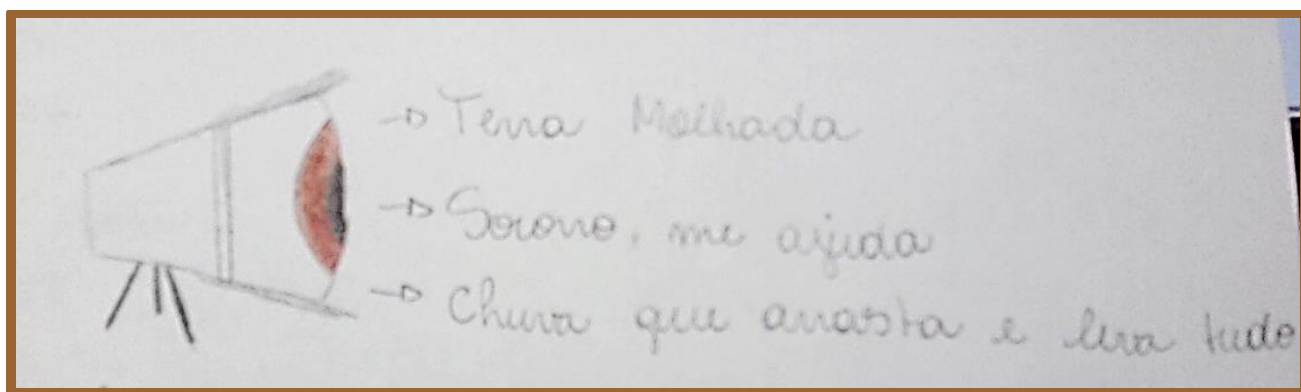 Terra Molhada
Socorro, me ajuda
Chuva que arrasta e leva tudo